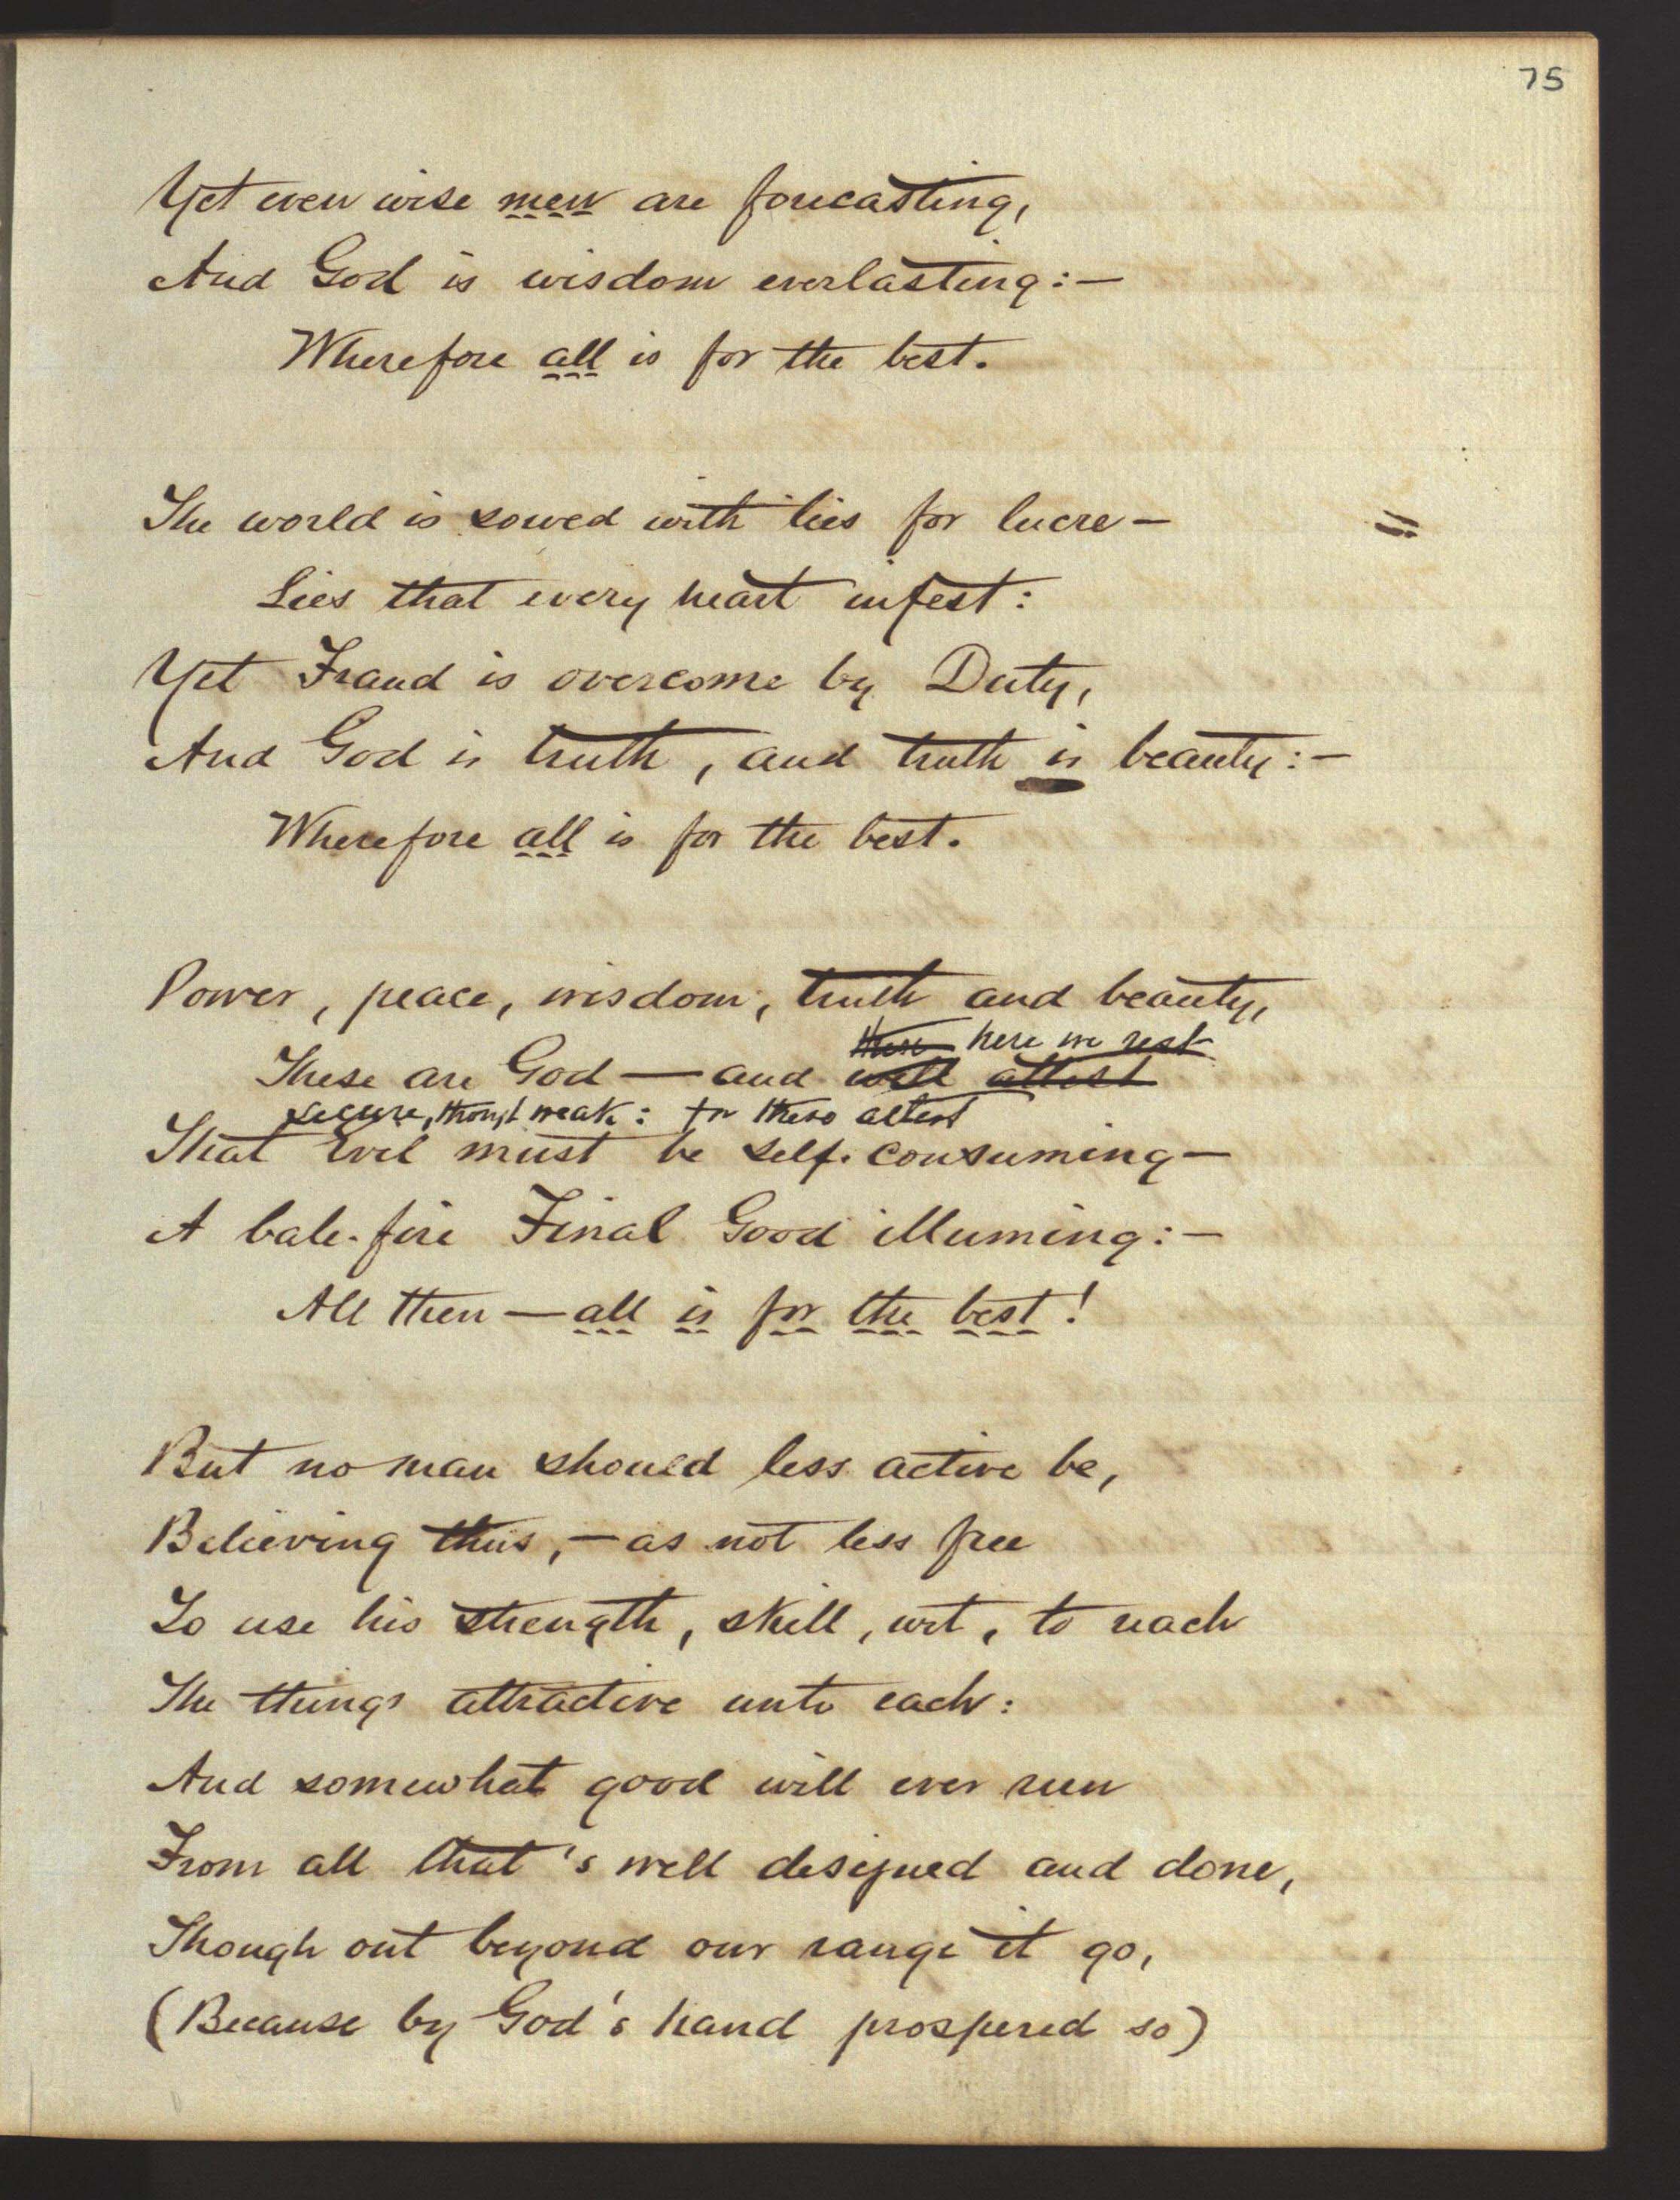 75
Yet even wise men are forecasting,
And God is wisdom everlasting:—
Wherefore all is for the best.
The world is sowed with lies for lucre—
Lies that every heart infest:
Yet Fraud is overcome by Duty,
And God is truth, and truth is beauty:—
Wherefore all is for the best.
Power, peace, wisdom, truth and beauty,
here we rest
These are God—and well attest
secure, though weak: for these attest
That Evil must be self-consuming—
A bale-fire Final Good illuming:—
All then—all is for the best!
But no man should less active be,
Believing thus,—as not less free
To use his strength, skill, wit, to reach
The things attractive unto each:
And somewhat good will ever run
From all that's well designed and done,
Though out beyond our range it go,
(Because by God's hand prospered so)